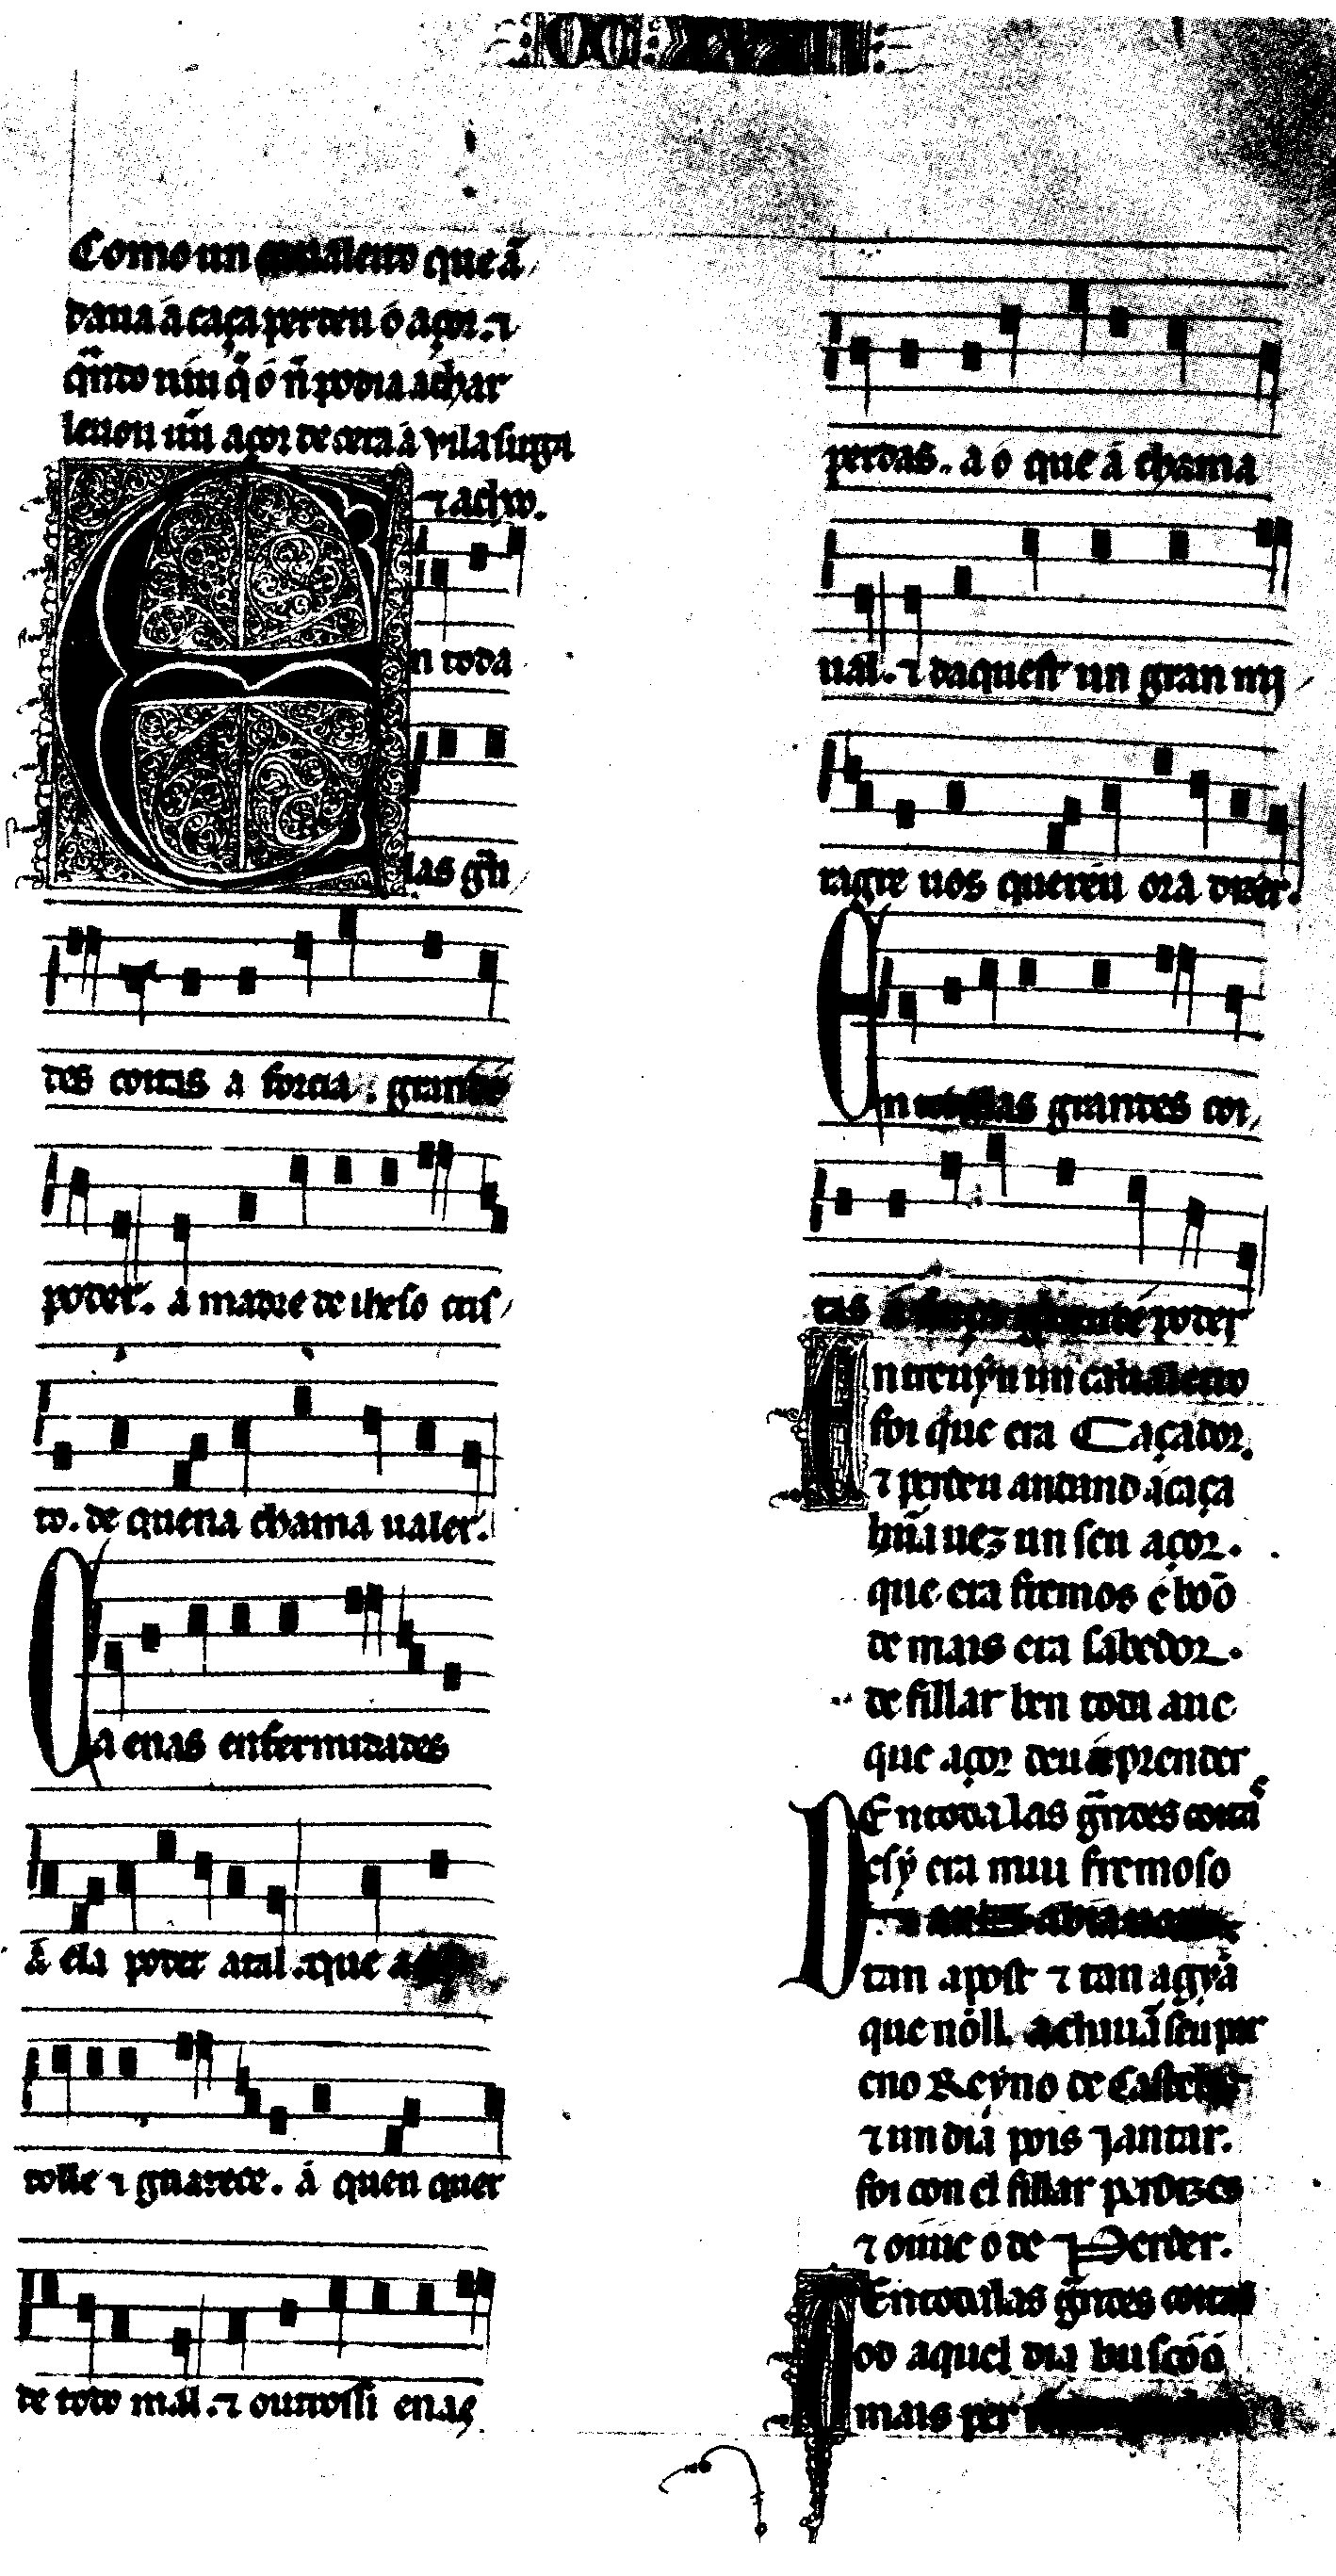 Como un caualeiro que ã
daua á caça perdeu ó açor. ⁊
qñdo uiu q̃ ó ñ podia achar
leuou un̄ açor de cera á vila sirga
⁊ achoo.
En toda
las gñ
des coitas á forcia. grande
poder. a madre de iheso cris
to. de quena chama ualer.
Ca enas enfermidades
á ela poder atal. que
tolle ⁊ guarece. á quen quer
de todo mal. ⁊ outrossi enas
perdas. a o que á chama
ual. ⁊ daquest un gran mi
ragre uos querreu ora dizer.
En todalas grandes coi
tas á força grande poder
En treuyn̄ un caualeiro
foi que era Caçador.
⁊ perdeu andando á caça
hũa uez un seu açor.
que era fremos é bõo
de mais era sabedor.
de fillar ben toda aue
que açor deu á prender
En todalas gñdes coitas
Desy era muu fremoso
tan apost ⁊ tan agỹa
que nõll achauã seu par
eno Reyno de Castela
⁊ un dia pois Jantar.
foi con el fillar perdizes
⁊ ouue ó de Perder.
En todalas gñdes coitas
Tod aquel dia buscoo ó
mais per